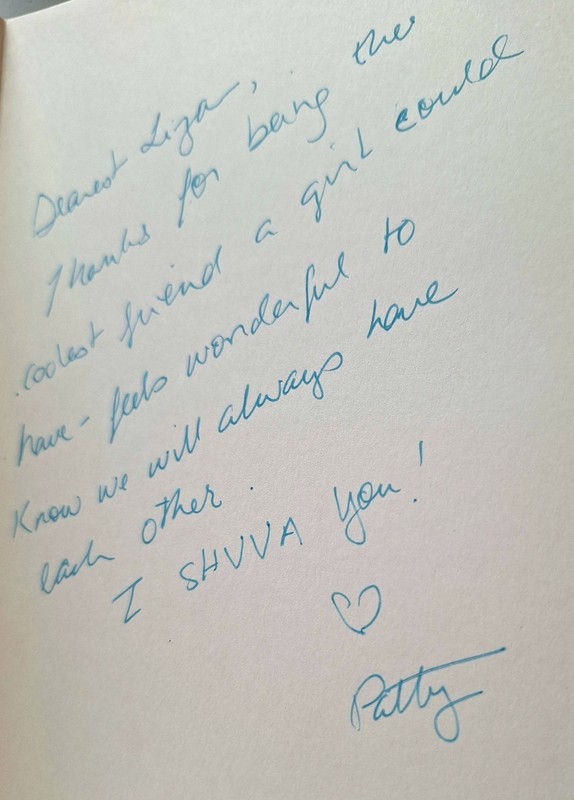 Dearest Liza,
Thanks for being the
coolest friend a girl could
have - feels wonderful to
Know we will always have
each other.
I SHVVA you!
♡
Patty